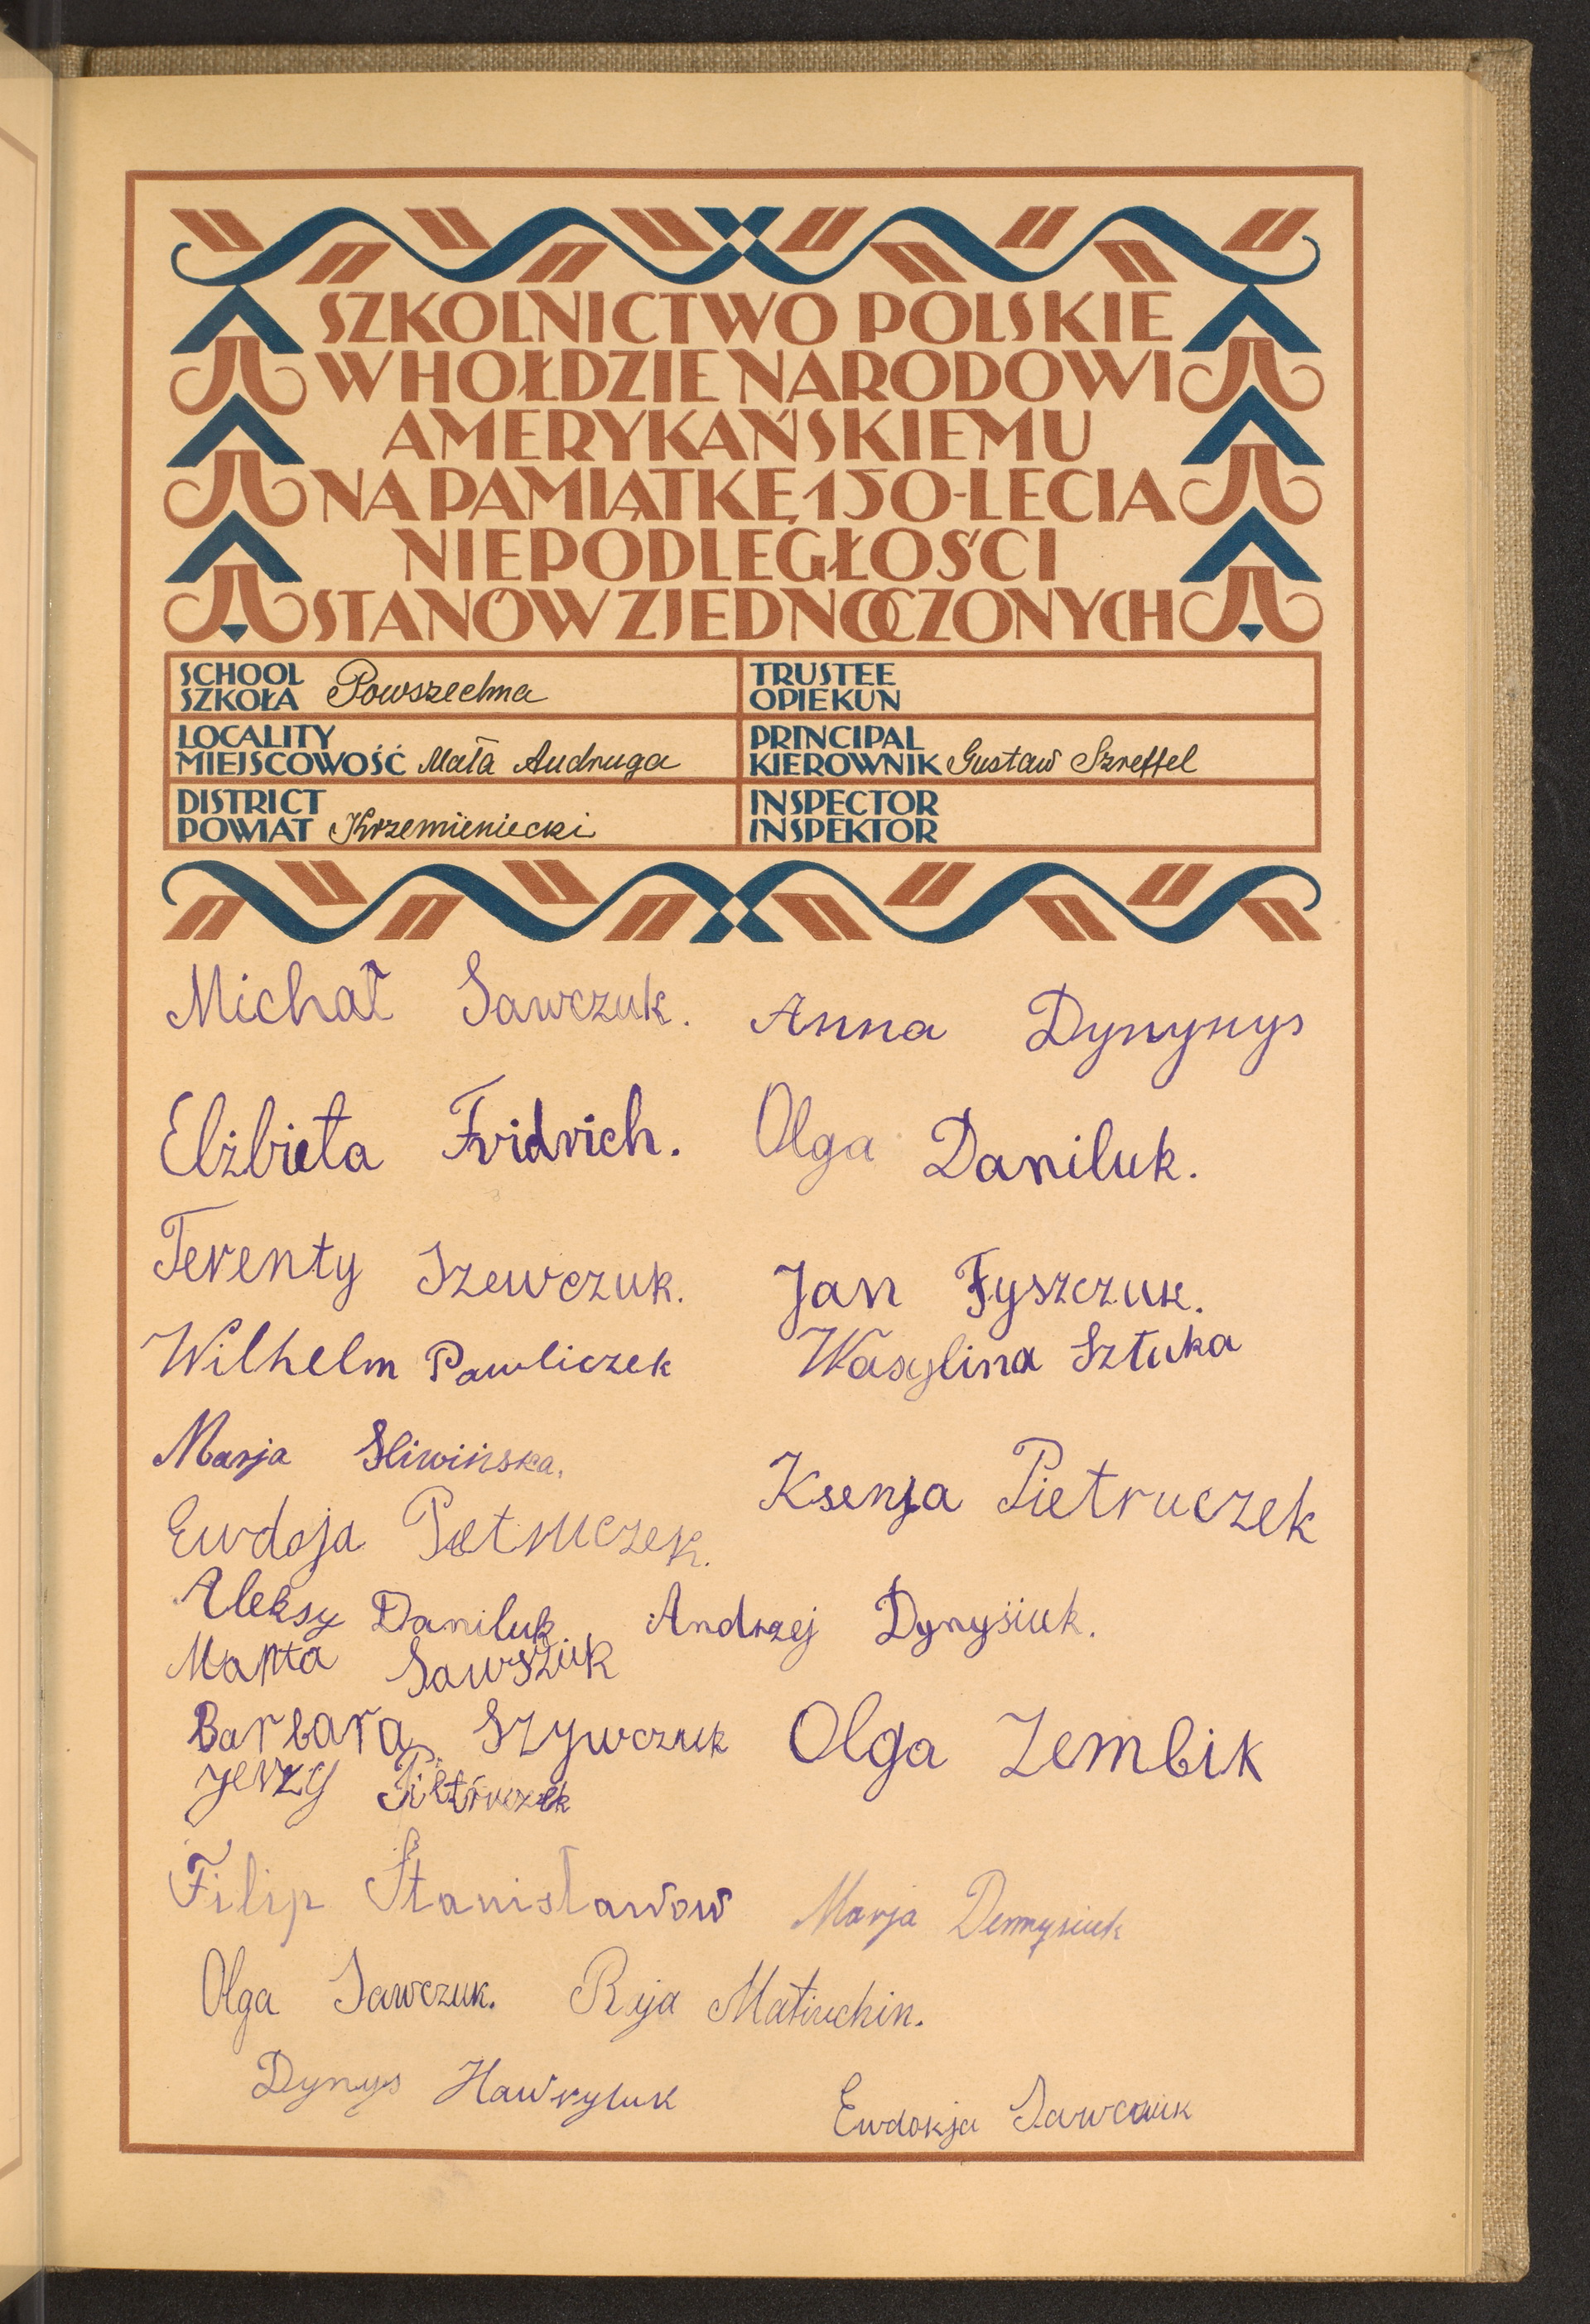 SZKOLNICTWO POLSKIE
W HOŁDZIE NARODOWI
AMERYKAŃSKIEMU
NA PAMIĄTKĘ 150-LECIA
NIEPODLEGŁOŚCI
STANÓW ZJEDNOCZONYCH
SCHOOL
SZKOŁA Powszechna
TRUSTEE
OPIEKUN
LOCALITY
MIEJSCOWOŚĆ Mała Andruga
PRINCIPAL
KIEROWNIK Gustaw Szreffel
DISTRICT
POWIAT Krzemieniecki
INSPECTOR
INSPEKTOR
Michał Sawczuk. Anna Dynynys
Elżbieta Fridrich. Olga Daniluk.
Terenty Szewczuk. Jan Fyszczuk.
Wilhelm Pawliczek Wasylina Sztuka
Marja Sliwińska. Ksenja Pietruczek
Ewdoja Pietruczek.
Aleksy Daniluk Andrzej Dynysiuk.
Marta Sawszuk
Barbara Szywczuk Olga Zembik
Jerzy Pietruczek
Filip Stanisławow Marja Dennysiuk
Olga Sawczuk. Ryja Matiuchin.
Dynys Hawryluk Ewdokja Sawczuk